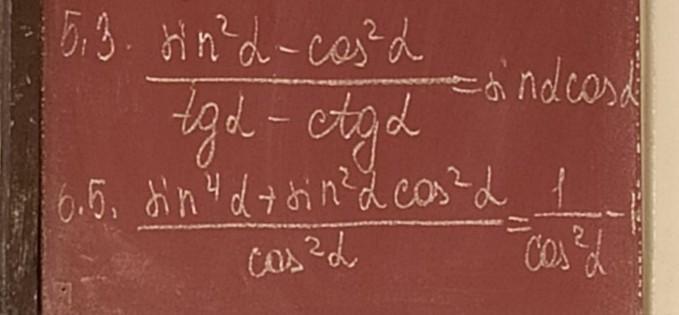 5.3. sin²α - cos²α
tgα - ctgα
= sinαcosα
6.5. sin⁴α + sin²α cos²α
cos²α
= 1
cos²α
- 1